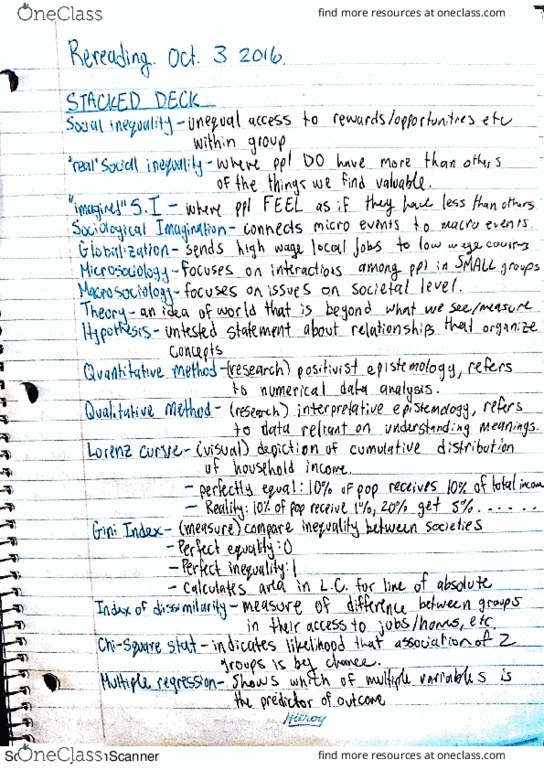 OneClass find more resources at oneclass.com
Rereading. Oct. 3 2016.
STACKED DECK
Social inequality - unequal access to rewards/opportunities etc
within group
"real" Social inequality - where ppl DO have more than others
of the things we find valuable.
"imagines" S.I - where ppl FEEL as if they have less than others
Sociological Imagination - connects micro events to macro events.
Globalization - sends high wage local jobs to low wage countries
Microsociology - focuses on interactions among ppl in SMALL groups
Macrosociology - focuses on issues on societal level.
Theory - an idea of world that is beyond what we see/measure
Hypothesis - untested statement about relationships that organize
concepts
Quantitative method - (research) positivist epistemology, refers
to numerical data analysis.
Qualitative Method - (research) interpretative epistemology, refers
to data reliant on understanding meanings.
Lorenz curve - (visual) depiction of cumulative distribution
of household income.
- perfectly equal: 10% of pop receives 10% of total income
- Reality: 10% of pop receive 1%, 20% get 5%. . . . . . .
Gini Index - (measure) compare inequality between societies
- Perfect equality: 0
- Perfect inequality: 1
- Calculates area in L.C. for line of absolute
Index of dissimilarity - measure of difference between groups
in their access to jobs/homes, etc.
Chi-Square stat - indicates likelihood that association of 2
groups is by chance.
Multiple regression - Shows which of multiple variables is
the predictor of outcome
Hilroy
OneClass Scanner find more resources at oneclass.com